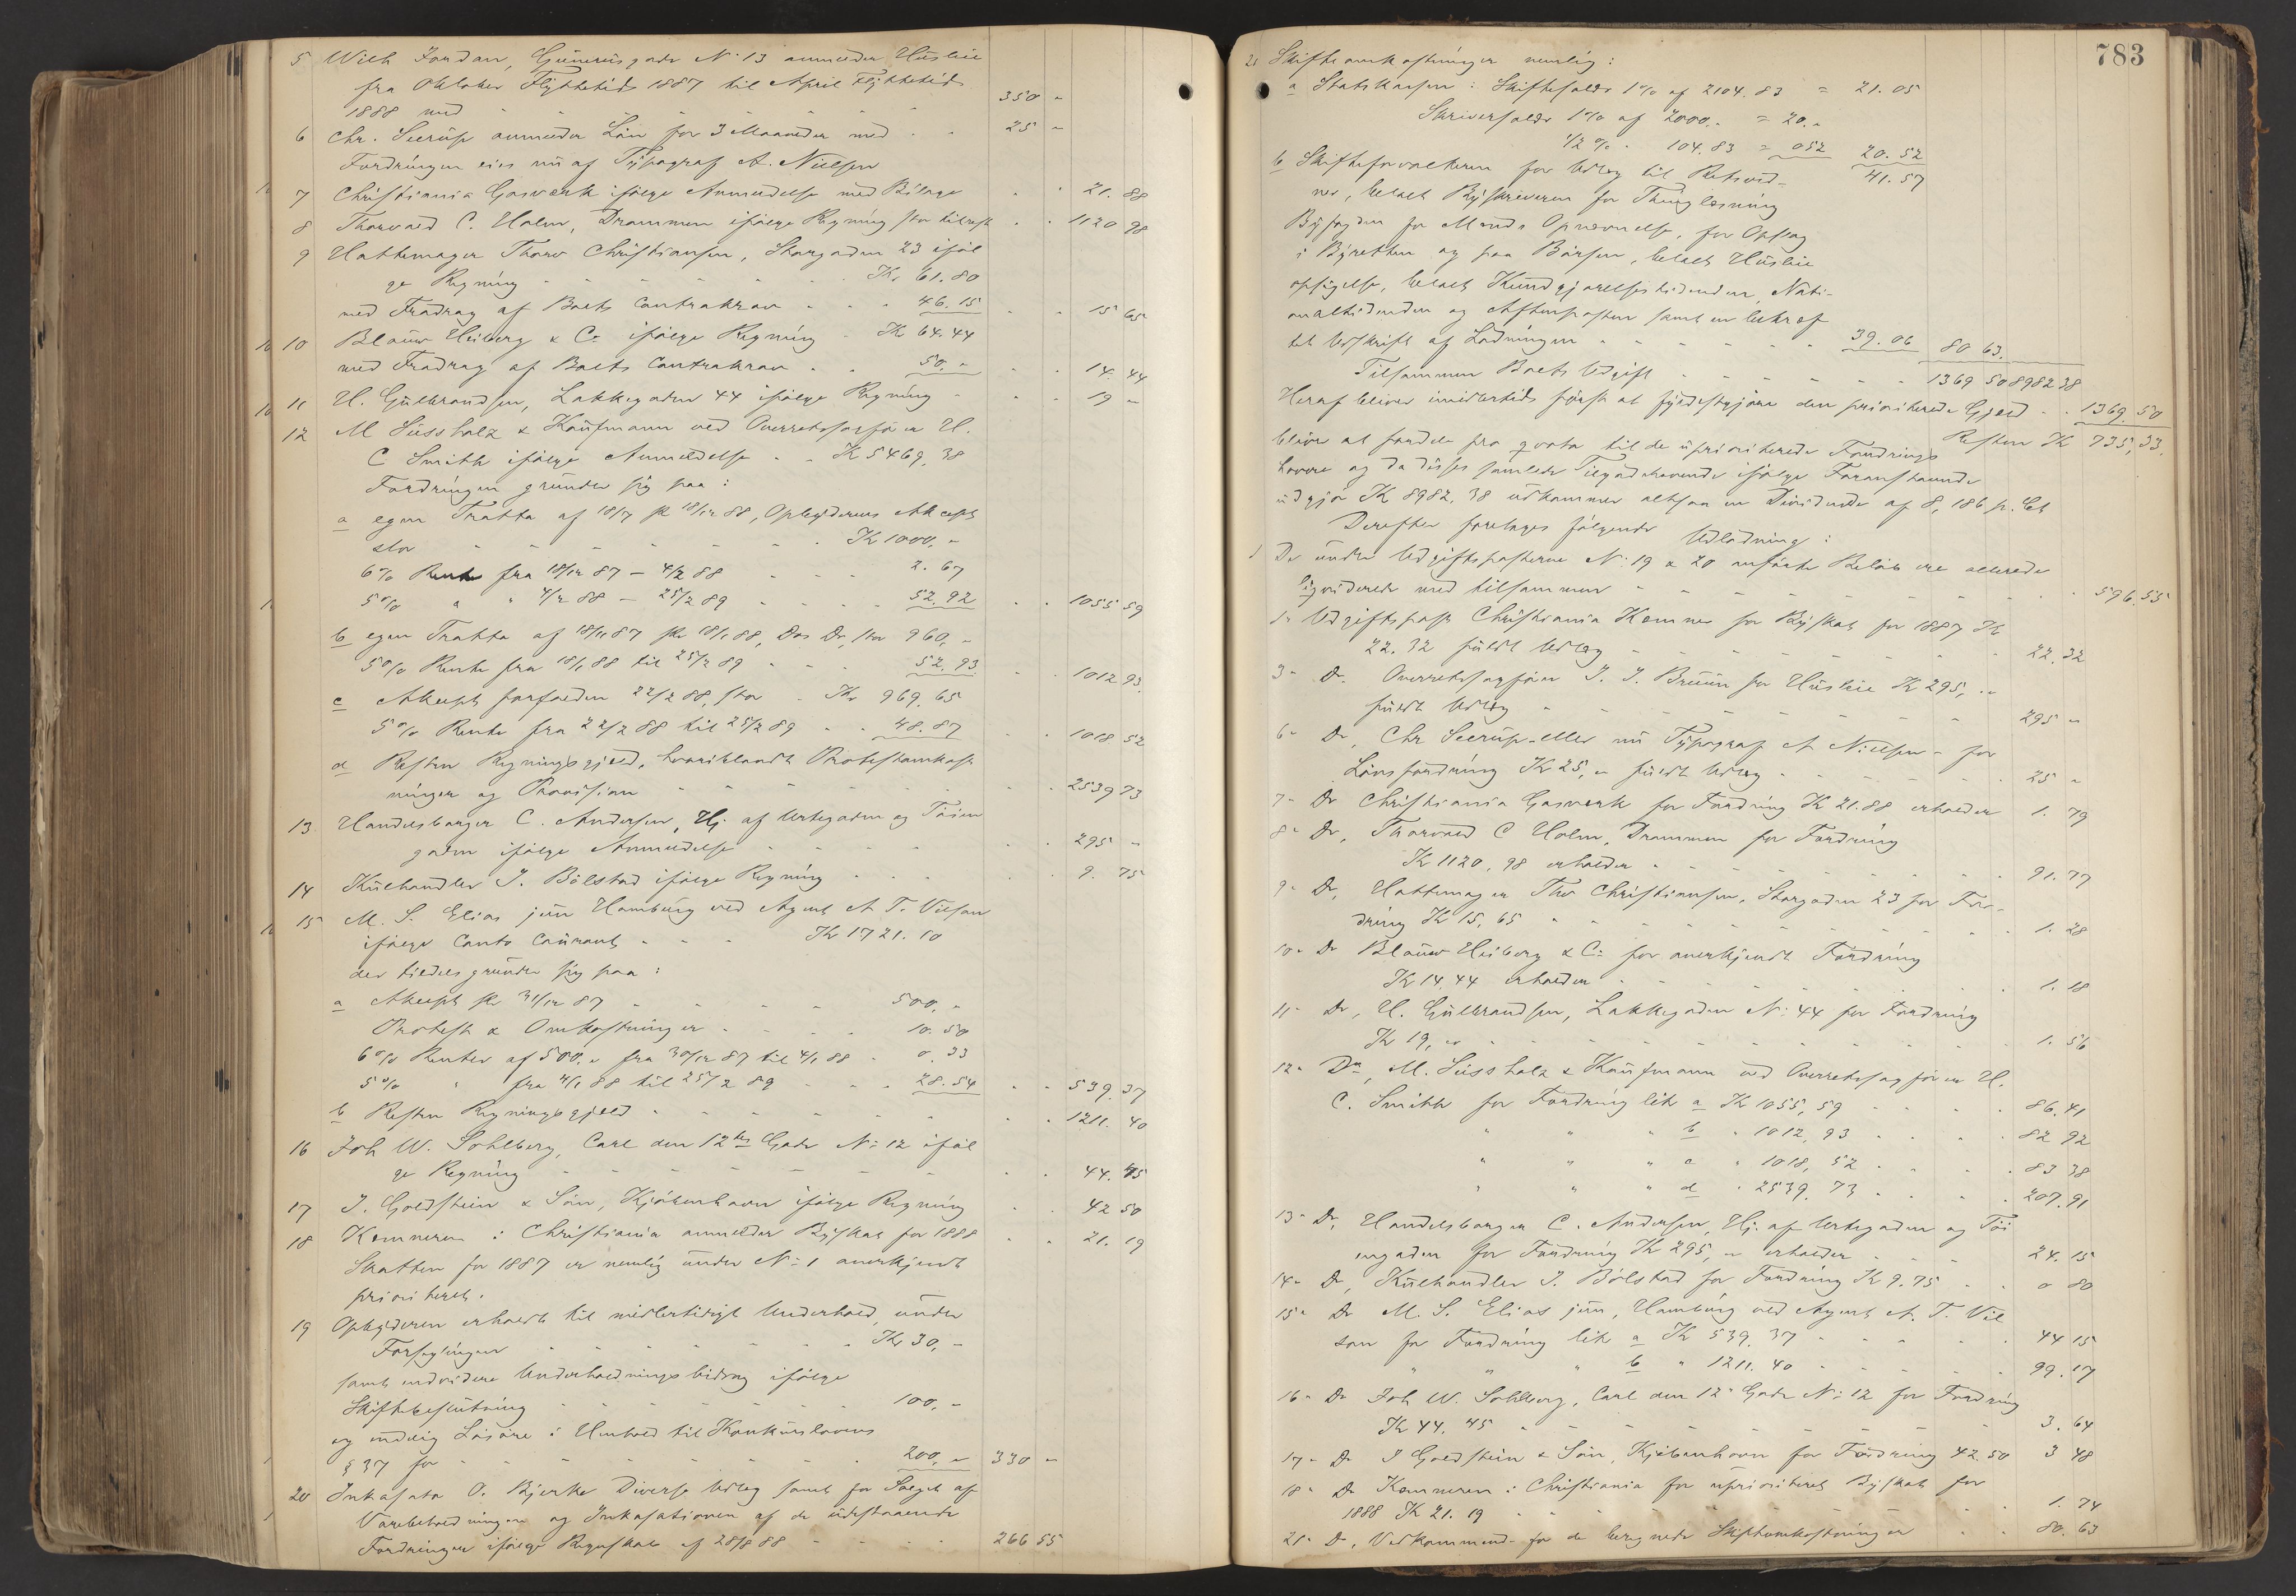 5 Wilh Jordan, Gunerusgade No 13 anmelder Husleie
fra Oktober Flyttetid 1887 til April Flyttetid
1888 med 350 "
6 Chr. Seerup anmelder Løn for 3 Maaneder med 25 "
Fordringen eies nu af Typograf A. Nielsen
7 Christiania Gasværk ifølge Anmeldelse med Bilage 21. 88
8 Thorvald C. Holm, Drammen ifølge Regning stor tilrest 1120 98
9 Hattemager Thorv Christiansen, Storgaden 23 iføl
ge Regning Kr 61.80
med Fradrag af Boets Contrakrav 46.15 15 65
10 Blauw Heiberg & Co ifølge Regning Kr 64.44
med Fradrag af Boets Contrakrav 50. " 14. 44
11 H. Gulbrandsen, Lakkegaden 44 ifølge Regning 19 "
12 M Süssholz & Kaufmann ved Overretssagfører H.
C Smith ifølge Anmeldelse Kr 5469, 38
Fordringen grunder sig paa:
a egen Tratta af 18/17 pr 18/12 88, Opbyderens Akcept
stor Kr 1000, "
6% Rente fra 18/12 87 – 4/2 88 2. 67
5% " " 4/2 88 – 25/2 89 52. 92 1055 59
b egen Tratta af 18/11 87 pr 18/1 88, Das Do, stor 960, "
5% Rente fra 18/1 88 til 25/2 89 52. 93 1012 93.
c Akcept forfalden 22/2 88, stor Kr 969. 65
5% Rente fra 22/2 88 til 25/2 89 48. 87 1018 52
d Resten Regningsgjæld, hvoriblandt Protestomkost
ninger og Provision 2539 73
13 Handelsborger C. Andersen, Hj. af Urtegaden og Töien
gaden ifølge Anmeldelse 295 "
14 Kulhandler J. Bölstad ifølge Regning 9. 75
15 M. S. Elias jun Hamburg ved Agent A T. Vilson
ifølge Conto Courant Kr 1721. 10
der tildels grunder sig paa:
a Akcept pr 31/12 87 500, "
Protest & Omkostninger 10. 50
6% Renter af 500. " fra 30/12 87 til 4/1 88 0. 33
5% " fra 4/1 88 til 25/2 89 28. 54 539. 37
b Resten Regningsgjæld 1211. 40
16 Joh W. Sohlberg, Carl den 12tes Gade No 12 iføl
ge Regning 44. 45
17 J. Goldstein & Søn, Kjøbenhavn ifølge Regning 42 50
18 Kemneren i Christiania anmelder Byskat for 1888 21. 19
Skatten for 1887 er nemlig under No 1 anerkjendt
prioriteret.
19 Opbyderen erholdt til midlertidigt Underhold under
Forseglingen Kr 30, "
samt endvidere Underholdningsbidrag ifølge
Skiftebeslutning 100, "
og endelig Løsøre i Henhold til Konkurslovens
§ 37 for 200, " 330 "
20 Inkasator O. Bjerke Diverse Udlæg samt for Salget af
Varebeholdningen og Inkasationen af de udestaaende
Fordringer ifølge Regnskab af 28/8 88 266 55
783
21 Skifteomkostninger nemlig:
a Statskassen: Skiftesalær 1% af 2104. 83 = 21. 05
Skriversalær 1% af 2000. " = 20. "
1/2 % " 104. 83 = 052 20. 52
41. 57
b Skifteforvalteren for Udlæg til Retsvid-
ner, betalt Byskriveren for Thinglæsning
Byfogden for Mænds Opnævnelse, for Opslag
i Byretten og paa Børsen, betalt Husleie
opsigelse, betalt Kundgjørelsestidenden, Nati-
onaltidenden og Aftenposten samt en bekræf
tet Udskrift af Lodningen 39. 06 80 63.
Tilsammen Boets Udgift 1369 50 8982 38
Heraf bliver imidlertid først at fyldestgjøre den prioriterede Gjæld 1369. 50
Resten Kr 735, 33.
bliver at fordele pro qvota til de uprioriterede Fordrings
havere og da disses samlede Tilgodehavende ifølge Foranstaaende
udgjør Kr 8982. 38 udkommer altsaa en Dividende af 8, 186 p. Ct
Derefter foretages følgende Udlodning:
De under Udgiftsposterne No 19 & 20 anførte Beløb ere allerede
liqviderede med tilsammen 596. 55
1" Udgiftspost Christiania Kemner for Byskat for 1887 Kr
22. 32 fuldt Udlæg 22. 32
3" Do Overretssagfører J. J. Bruun for Husleie Kr 295, "
fuldt Udlæg 295 "
6" Do, Chr Seerup – eller nu Typograf A Nielsen – for
Lønsfordring Kr 25, " fuldt Udlæg 25 "
7" Do Christiania Gasværk for Fordring Kr 21. 88 erholder 1. 79
8" Do, Thorvald C Holm, Drammen for Fordring
Kr 1120, 98 erholder 91. 77
9" Do, Hattemager Thv Christiansen, Storgaden 23 for For-
dring Kr 15, 65 1. 28
10" Do Blauw Heiberg & Co for anerkjendt Fordring
Kr 14. 44 erholder 1. 18
11" Do, H. Gulbrandsen, Lakkegaden No 44 for Fordring
Kr 19, " 1. 56
12" Do, M. Süssholz & Kaufmann ved Overretssagfører H.
C. Smith for Fordring litr a Kr 1055, 59 86. 41
" " " b " 1012, 93 82 92
" " " c " 1018, 52 83 38
" " " d " 2539. 73 207. 91
13" Do, Handelsborger C. Andersen, Hj. af Urtegaden og Töi
engaden for Fordring Kr 295, " erholder 24. 15
14" Do, Kulhandler J. Bölstad for Fordring Kr 9. 75 0 80
15" Do M. S. Elias jun, Hamburg ved Agent A. T. Vil
son for Fordring litr a Kr 539. 37 44 15
" " " b " 1211. 40 99. 17
16" Do Joh W. Sohlberg, Carl den 12" Gade No 12 for Fordring
Kr 44. 45 3. 64
17" Do J Goldstein & Søn, Kjøbenhavn for Fordring 42. 50 3 48
18" Do Kemneren i Christiania for uprioriteret Byskat for
1888 Kr 21. 19 1. 74
21" Do, Vedkommende for de beregnede Skifteomkostninger 80. 63